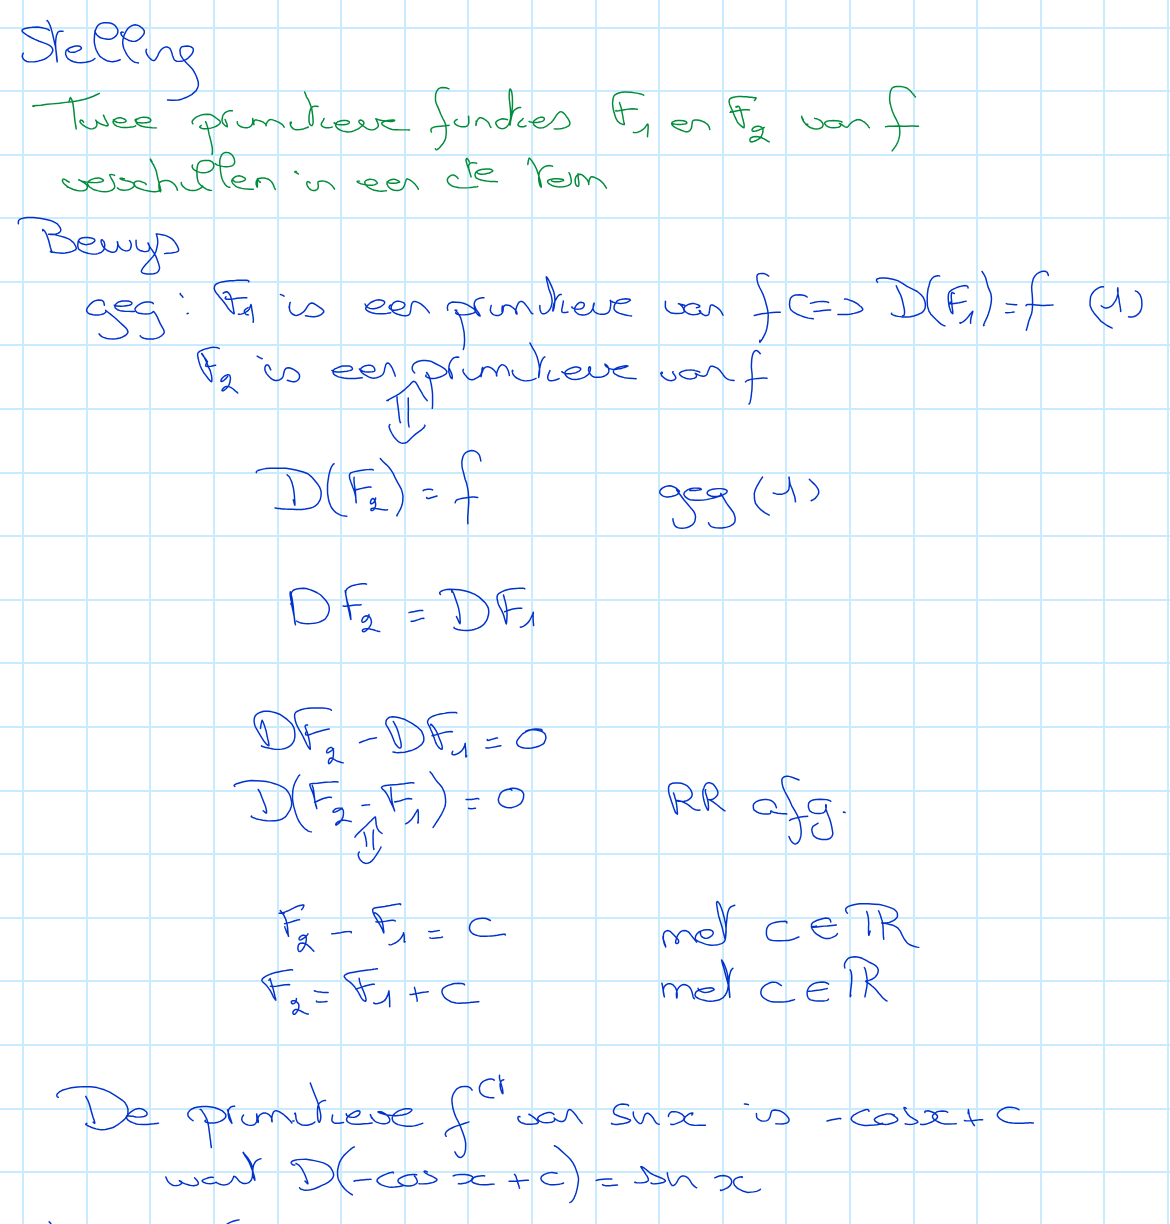 Stelling
Twee primitieve functies F₁ en F₂ van f
verschillen in een cte term
Bewijs
geg: F₁ is een primitieve van f <=> D(F₁) = f (1)
F₂ is een primitieve van f
⇕
D(F₂) = f geg (1)
DF₂ = DF₁
DF₂ - DF₁ = 0
D(F₂ - F₁) = 0 RR afg.
⇕
F₂ - F₁ = c met c ∈ ℝ
F₂ = F₁ + c met c ∈ ℝ
De primitieve fct van sin x is -cos x + c
want D(-cos x + c) = sin x